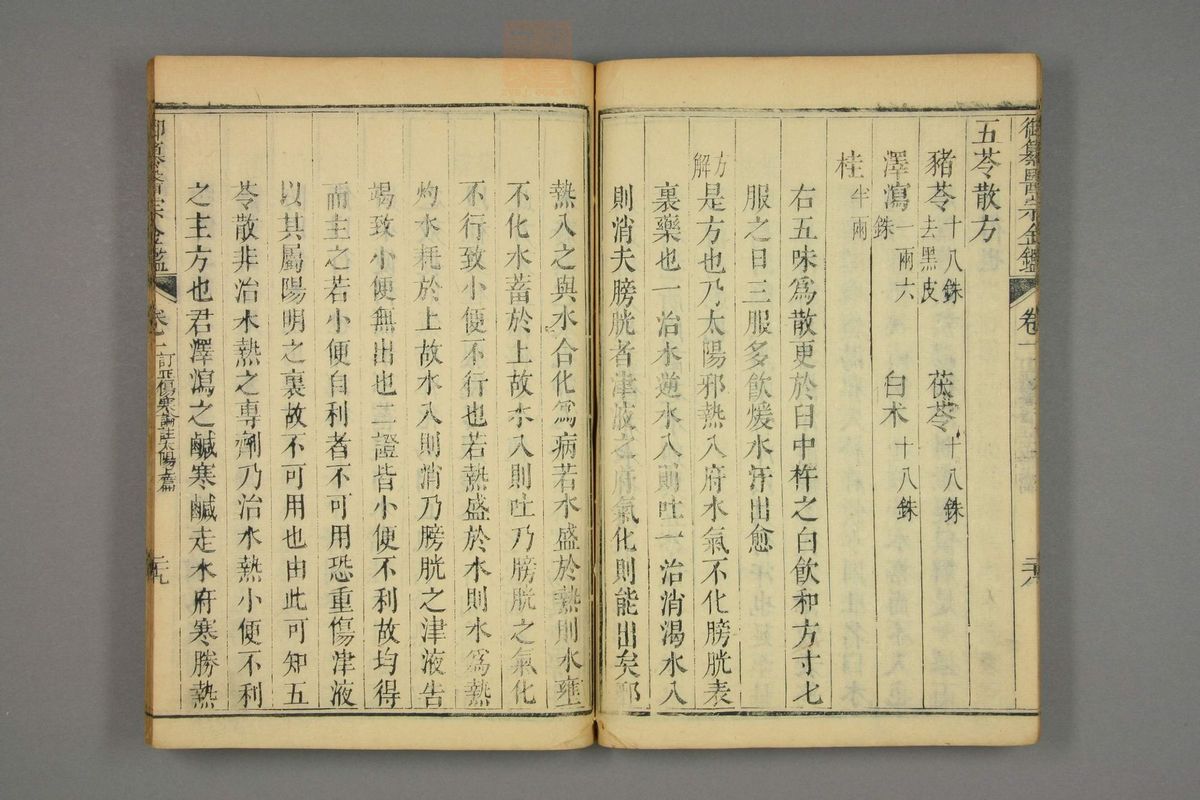 御纂醫宗金鑑 卷一
五苓散方
豬苓十八銖去黑皮 茯苓十八銖
澤瀉一兩六銖 白朮十八銖
桂半兩
右五味為散更於臼中杵之白飲和方寸匕
服之日三服多飲煖水汗出愈
方解 是方也乃太陽邪熱入府水氣不化膀胱表
裏藥也一治水逆水入則吐一治消渴水入
則消夫膀胱者津液之府氣化則能出矣邪
熱入之與水合化為病若水盛於熱則水壅
不化水蓄於上故水入則吐乃膀胱之氣化
不行致小便不行也若熱盛於水則水為熱
灼水耗於上故水入則消乃膀胱之津液告
竭致小便無出也二證皆小便不利故均得
而主之若小便自利者不可用恐重傷津液
以其屬陽明之裏故不可用也由此可知五
苓散非治水熱之專劑乃治水熱小便不利
之主方也君澤瀉之鹹寒鹹走水府寒勝熱
御纂醫宗金鑑 卷一 訂正傷寒論註太陽上篇 二十九